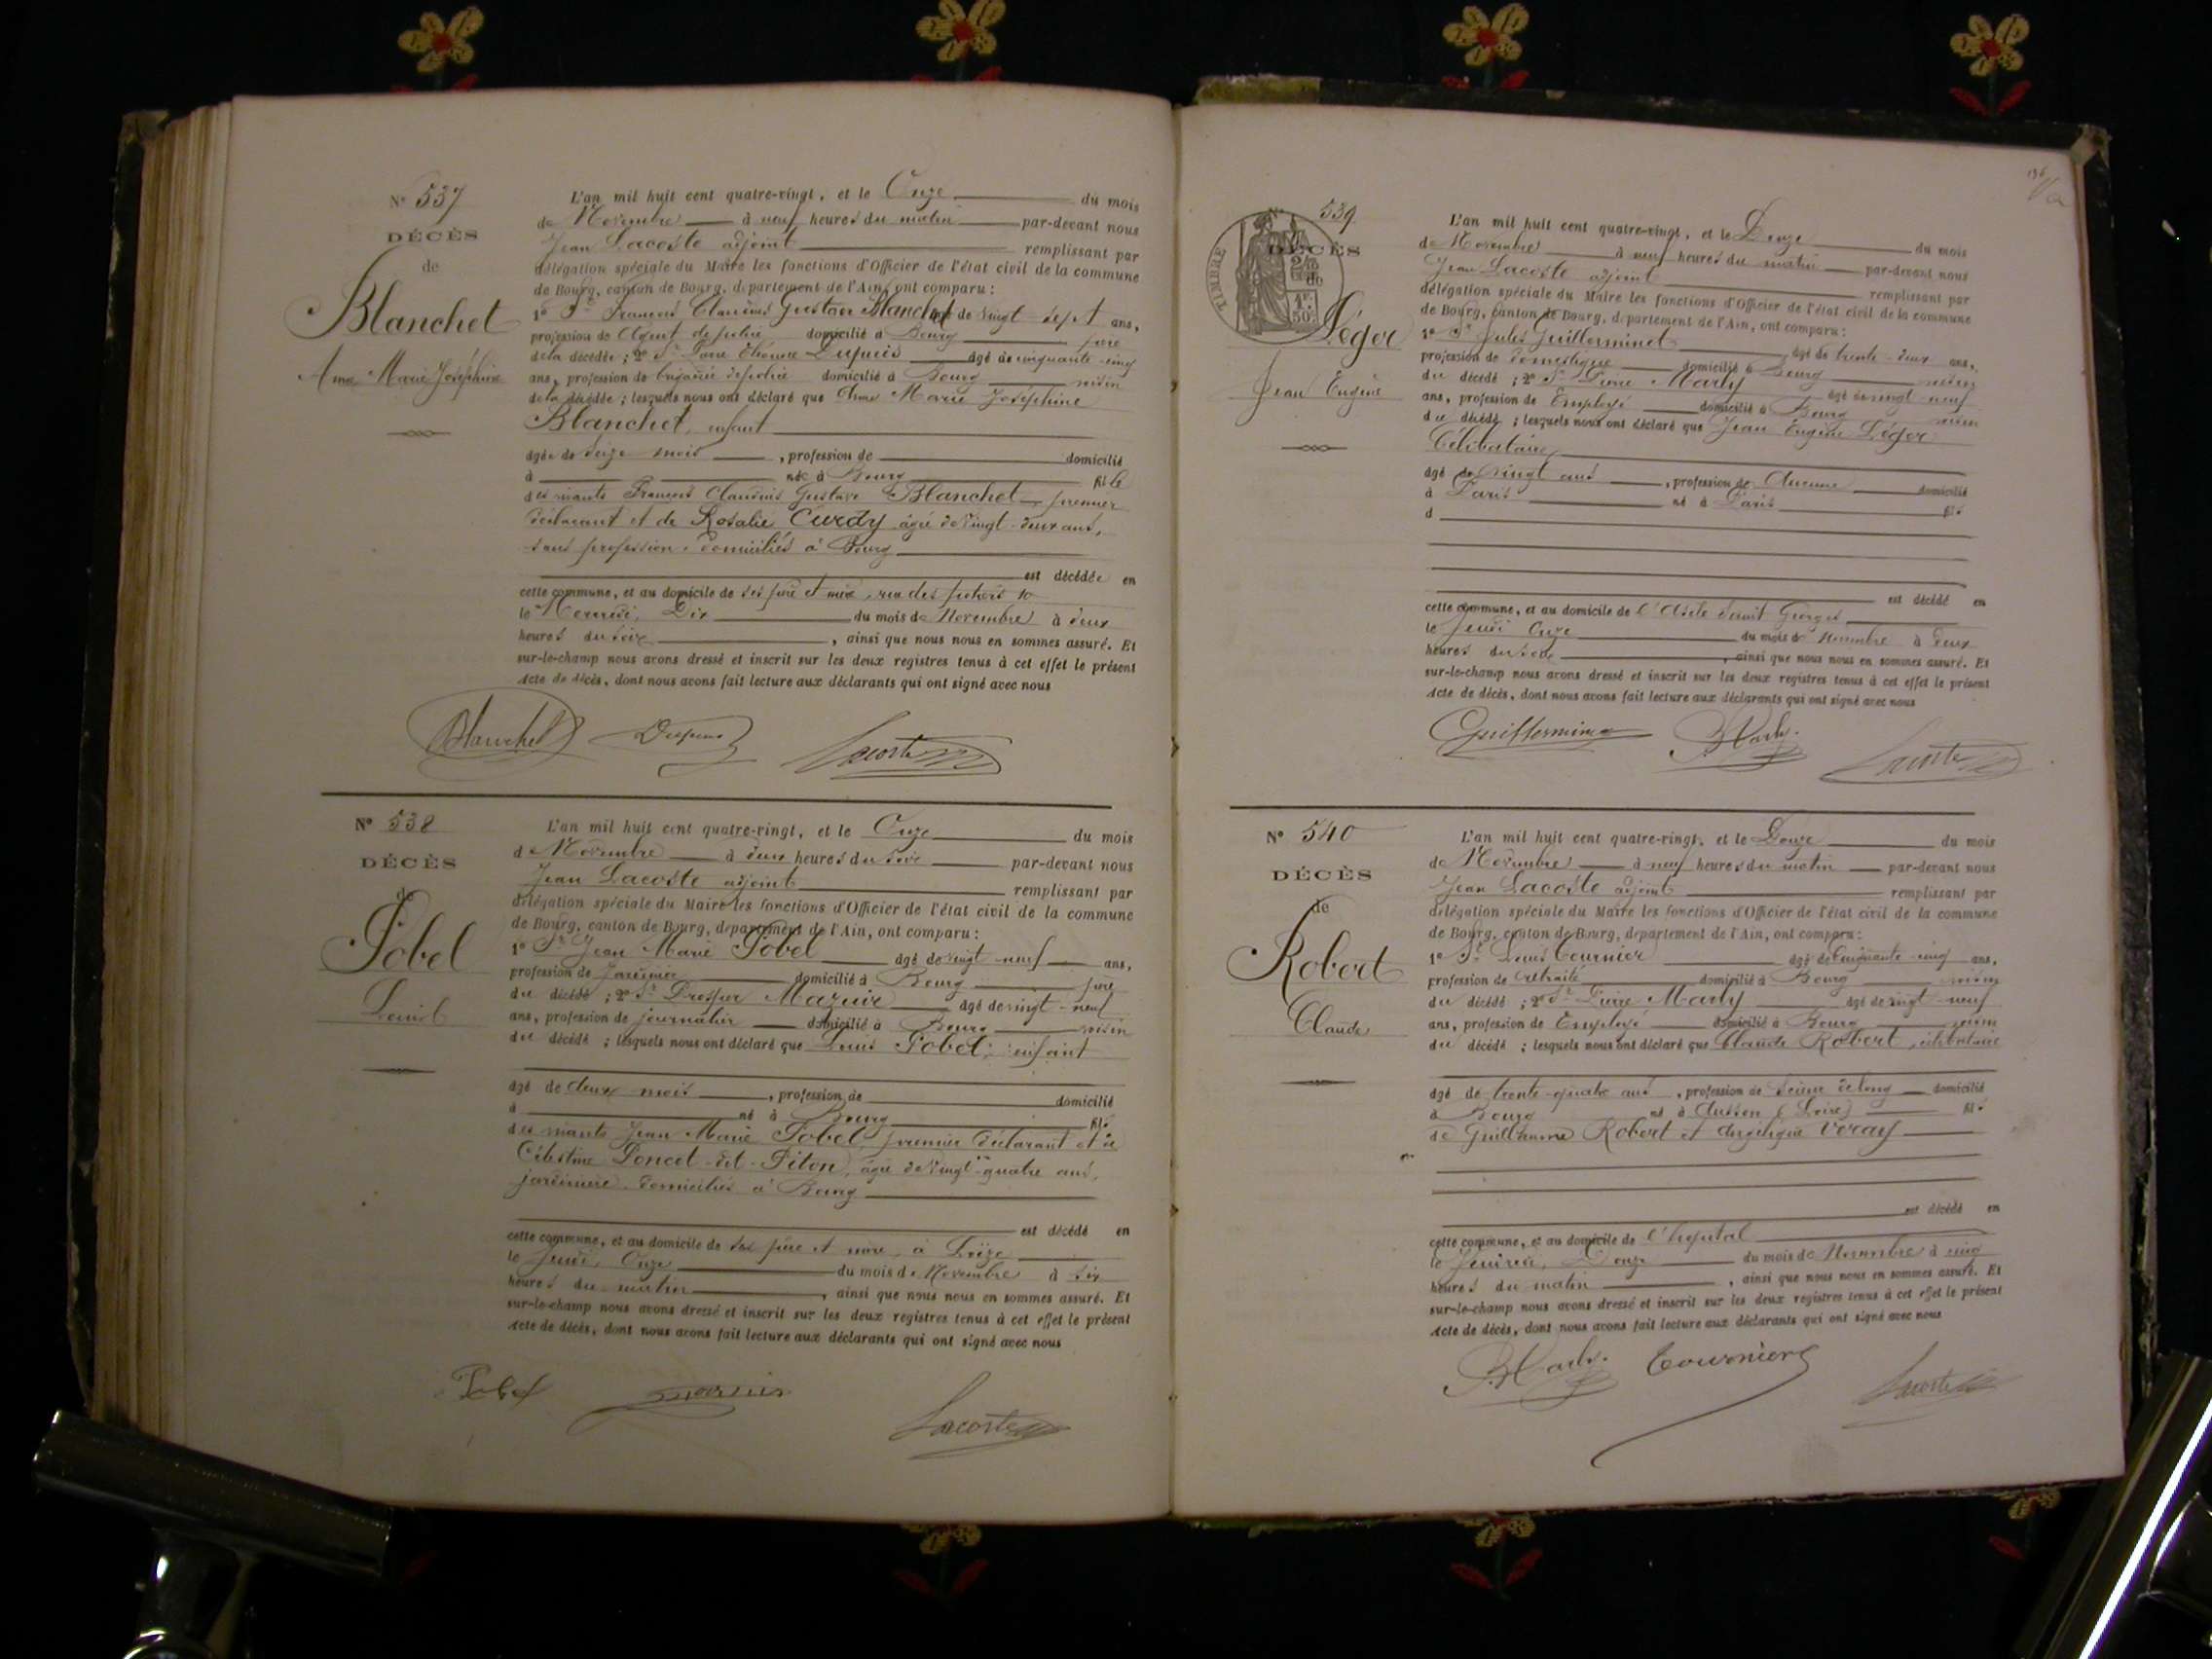 N° 537
DÉCÈS
de
Blanchet
Marie Joséphine
L'an mil huit cent quatre-vingt, et le Onze du mois
de Novembre à neuf heures du matin par-devant nous
Jean Lacoste adjoint remplissant par
délégation spéciale du Maire les fonctions d'Officier de l'état civil de la commune
de Bourg, canton de Bourg, département de l'Ain, ont comparu :
1° Sr François Claudius Gustave Blanchet âgé de vingt-sept ans,
profession de Agent de police domicilié à Bourg père
de la décédée ; 2° Sr Dupuis âgé de cinquante-cinq
ans, profession de brigadier de police domicilié à Bourg voisin
de la décédée ; lesquels nous ont déclaré que Marie Joséphine
Blanchet, enfant
âgée de seize mois , profession de domicilié
à née à Bourg fille
des vivants François Claudius Gustave Blanchet premier
déclarant et de Rosalie Curdy âgée de Vingt-deux ans,
sans profession, domiciliés à Bourg
est décédée en
cette commune, et au domicile de ses père et mère, rue des 10
le Mercredi, Dix du mois de Novembre à deux
heures du soir , ainsi que nous nous en sommes assuré. Et
sur-le-champ nous avons dressé et inscrit sur les deux registres tenus à cet effet le présent
Acte de décès, dont nous avons fait lecture aux déclarants qui ont signé avec nous
Blanchet Dupuis Lacoste
N° 538
DÉCÈS
de
Pobel
Louis
L'an mil huit cent quatre-vingt, et le Onze du mois
de Novembre à deux heures du soir par-devant nous
Jean Lacoste adjoint remplissant par
délégation spéciale du Maire les fonctions d'Officier de l'état civil de la commune
de Bourg, canton de Bourg, département de l'Ain, ont comparu :
1° Sr Jean Marie Pobel âgé de vingt-neuf ans,
profession de Jardinier domicilié à Bourg père
du décédé ; 2° Sr Prosper Mazuir âgé de vingt-neuf
ans, profession de journalier domicilié à Bourg voisin
du décédé ; lesquels nous ont déclaré que Louis Pobel, enfant
âgé de deux mois , profession de domicilié
à né à Bourg fils
des vivants Jean Marie Pobel, premier déclarant et de
Célestine Poncet-dit-Piton, âgée de Vingt-quatre ans,
jardinière, domiciliés à Bourg
est décédé en
cette commune, et au domicile de ses père et mère, à
le Jeudi, Onze du mois de Novembre à six
heures du matin , ainsi que nous nous en sommes assuré. Et
sur-le-champ nous avons dressé et inscrit sur les deux registres tenus à cet effet le présent
Acte de décès, dont nous avons fait lecture aux déclarants qui ont signé avec nous
Pobel Lacoste
N° 539
DÉCÈS
de
TIMBRE
Léger
Jean Eugène
L'an mil huit cent quatre-vingt, et le Douze du mois
de Novembre à neuf heures du matin par-devant nous
Jean Lacoste adjoint remplissant par
délégation spéciale du Maire les fonctions d'Officier de l'état civil de la commune
de Bourg, canton de Bourg, département de l'Ain, ont comparu :
1° Sr Jules Guillerminet âgé de trente-deux ans,
profession de domestique domicilié à Bourg voisin
du décédé ; 2° Sr Pierre Marly âgé de vingt-neuf
ans, profession de Employé domicilié à Bourg voisin
du décédé ; lesquels nous ont déclaré que Jean Eugène Léger
Célibataire,
âgé de vingt ans , profession de Aucune domicilié
à Paris né à Paris fils
d
est décédé en
cette commune, et au domicile de l'Asile Saint Georges
le Jeudi Onze du mois de Novembre à deux
heures du soir , ainsi que nous nous en sommes assuré. Et
sur-le-champ nous avons dressé et inscrit sur les deux registres tenus à cet effet le présent
Acte de décès, dont nous avons fait lecture aux déclarants qui ont signé avec nous
Guillerminet P. Marly Lacoste
N° 540
DÉCÈS
de
Robert
Claude
L'an mil huit cent quatre-vingt, et le Douze du mois
de Novembre à neuf heures du matin par-devant nous
Jean Lacoste adjoint remplissant par
délégation spéciale du Maire les fonctions d'Officier de l'état civil de la commune
de Bourg, canton de Bourg, département de l'Ain, ont comparu :
1° Sr Louis Tournier âgé de Cinquante-cinq ans,
profession de retraité domicilié à Bourg voisin
du décédé ; 2° Sr Pierre Marly âgé de vingt-neuf
ans, profession de Employé domicilié à Bourg voisin
du décédé ; lesquels nous ont déclaré que Claude Robert, célibataire
âgé de trente-quatre ans , profession de Scieur de long domicilié
à Bourg né à (Loire) fils
de Guillaume Robert et Angélique
est décédé en
cette commune, et au domicile de l'hôpital
le Vendredi, Douze du mois de Novembre à cinq
heures du matin , ainsi que nous nous en sommes assuré. Et
sur-le-champ nous avons dressé et inscrit sur les deux registres tenus à cet effet le présent
Acte de décès, dont nous avons fait lecture aux déclarants qui ont signé avec nous
P. Marly Tournier Lacoste